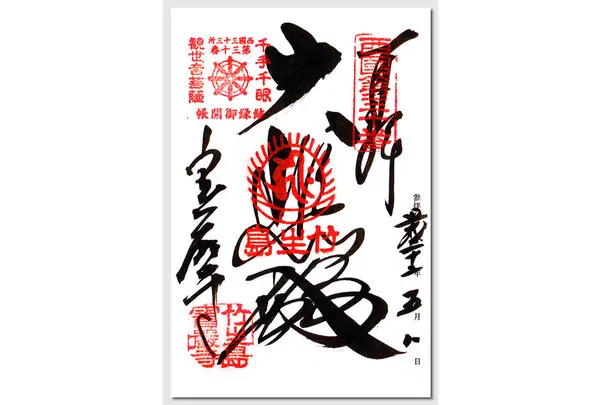 奉拝
西國第三十番
五月八日
西國三十三所
第三十番
千手千眼
観世音菩薩
結縁御開帳
大悲殿
竹生島
宝厳寺
竹生島
寳厳寺